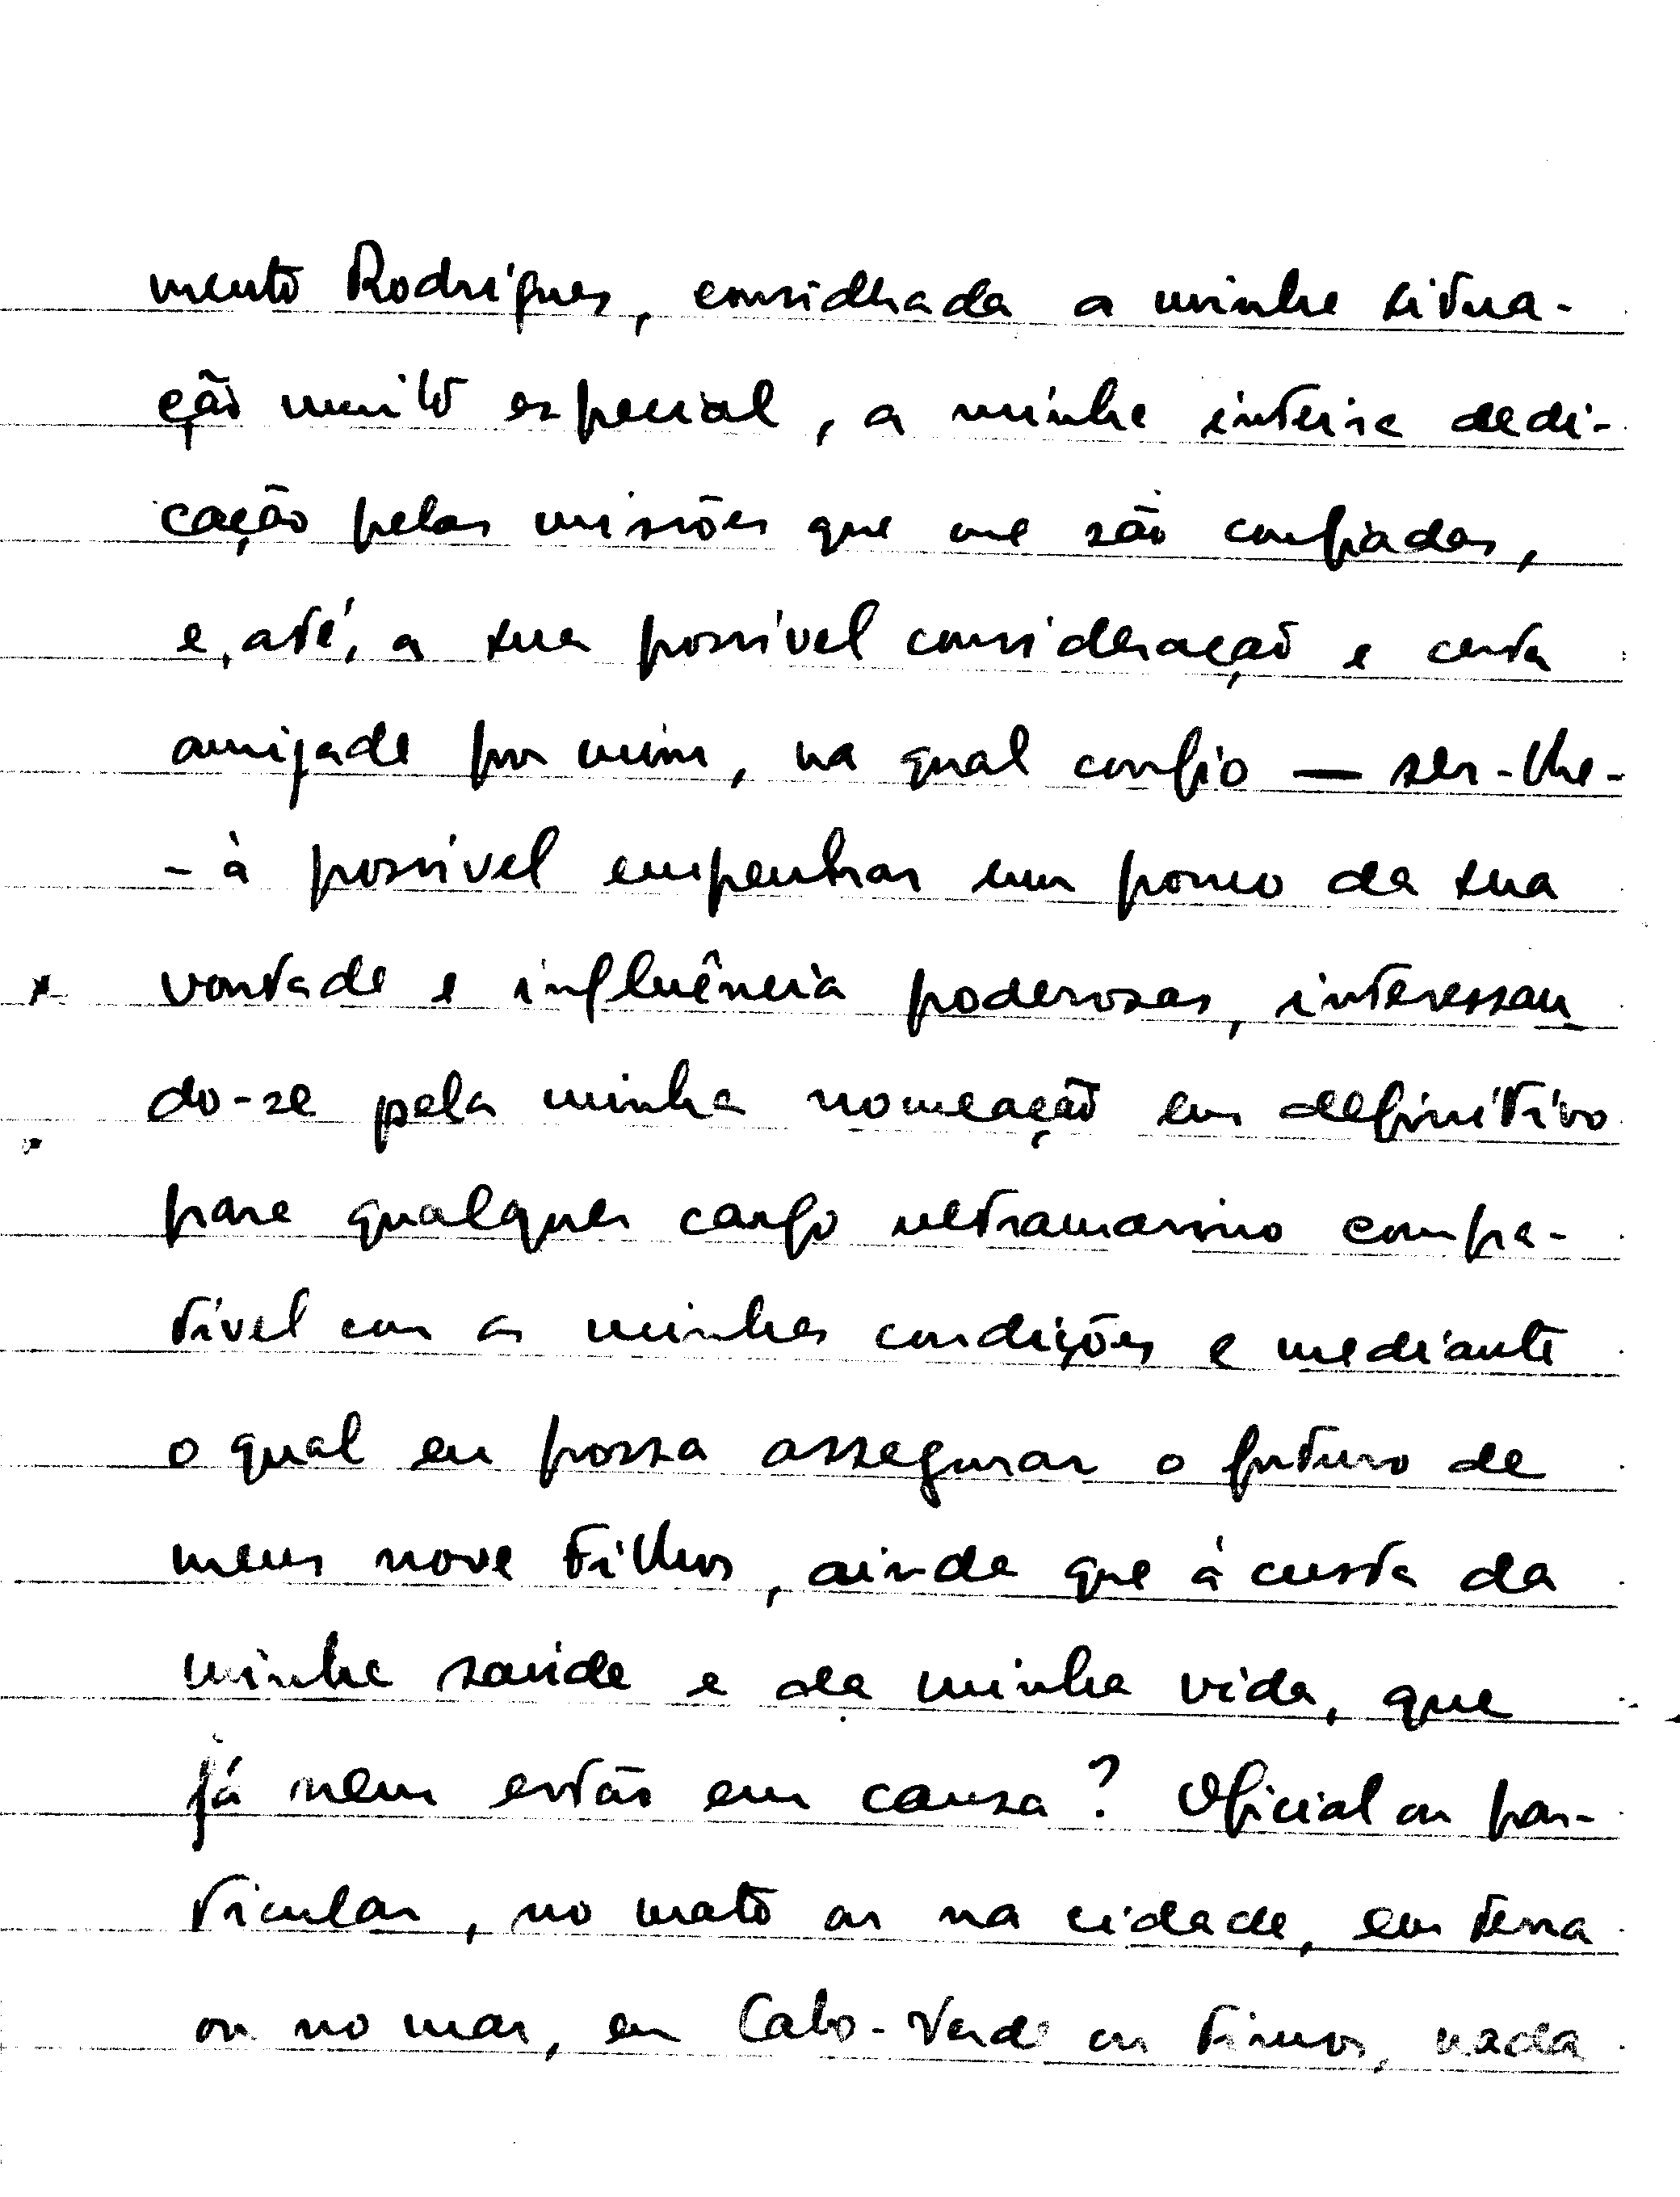 mento Rodrigues, considerada a minha situa-
ção muito especial, a minha inteira dedi-
cação pelas missões que me são confiadas,
e, até, a sua possível consideração e certa
amizade por mim, na qual confio — ser-lhe-
-à possível empenhar um pouco da sua
vontade e influência poderosas, interessan
do-se pela minha nomeação em definitivo
para qualquer cargo ultramarino compa-
tível com as minhas condições e mediante
o qual eu possa assegurar o futuro de
meus nove filhos, ainda que à custa da
minha saúde e da minha vida, que
já nem estão em causa? Oficial ou par-
ticular, no mato ou na cidade, em terra
ou no mar, em Cabo-Verde ou Timor, nada